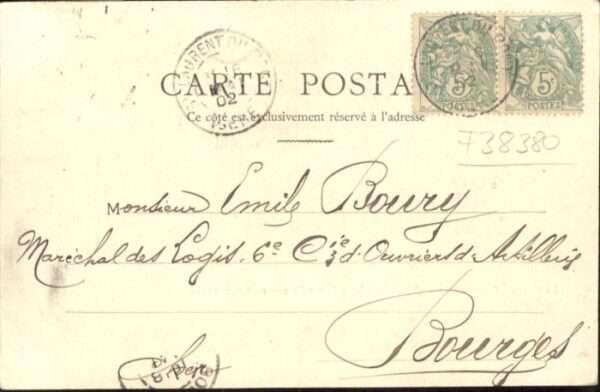 CARTE POSTA
Ce côté est exclusivement réservé à l'adresse
5c 5c
POSTES POSTES
LAURENT DU PONT
02
ISERE
F38380
Monsieur Emile Boury
Maréchal des Logis, 6e Cie d'Ouvriers d'Artillerie
Bourges